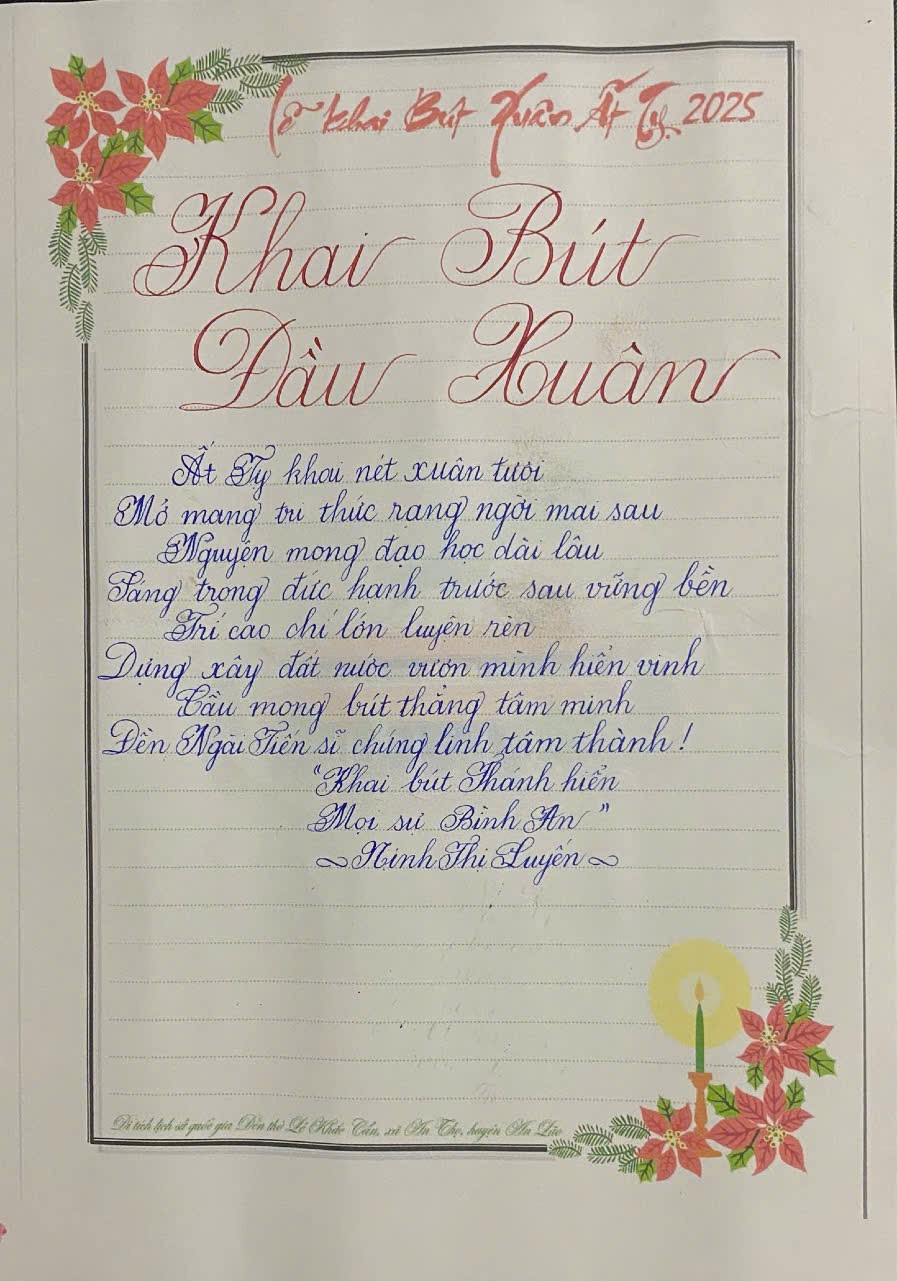 Lễ Khai Bút Xuân Ất Tỵ 2025
Khai Bút
Đầu Xuân
Ất Tỵ khai nét xuân tươi
Mở mang tri thức rạng ngời mai sau
Nguyện mong đạo học dài lâu
Sáng trong đức hạnh trước sau vững bền
Trí cao chí lớn luyện rèn
Dựng xây đất nước vươn mình hiển vinh
Cầu mong bút thẳng tâm minh
Đền Ngài Tiến sĩ chứng linh tâm thành!
"Khai bút Thánh hiền
Mọi sự Bình An"
~ Ninh Thị Luyến ~
Di tích lịch sử quốc gia Đền thờ Lê Khắc Cẩn, xã An Thọ, huyện An Lão